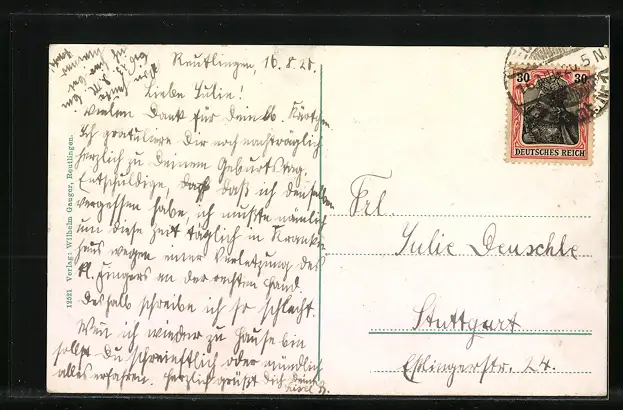 Reutlingen, 16.8.20.
Liebe Julie!
Vielen Dank für Dein lb. Kärtchen
Ich gratuliere Dir noch nachträglich
herzlich zu Deinem Geburtstag.
Entschuldige, daß ich denselben
vergessen habe, ich mußte nämlich
um diese Zeit täglich in Kranken
haus wegen einer Verletzung des
kl. Fingers an der rechten Hand.
Deshalb schreibe ich so schlecht.
Wenn ich wieder zu Hause bin
sollst Du schriftlich oder mündlich
alles erfahren. Herzlich grüßt Dich Deine
12521 Verlag: Wilhelm Gauger, Reutlingen.
30 30
DEUTSCHES REICH
Frl.
Julie Deuschle
Stuttgart
Eßlingerstr. 24.